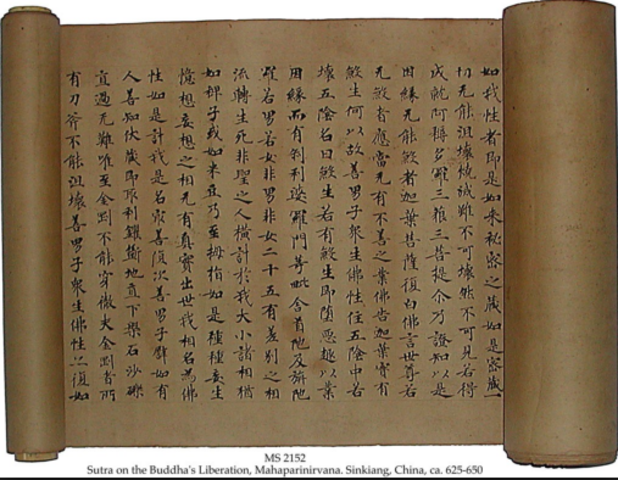 如我性者即是如来秘密之蔵如是密蔵一
切无能沮壞燒滅雖不可壞然不可見若得
成就阿耨多羅三藐三菩提尒乃證知以是
因緣无能煞者迦葉菩薩復白佛言世尊若
无煞者應當无有不善之業佛告迦葉實有
煞生何以故善男子衆生佛性住五陰中若
壞五陰名曰煞生若有煞生即堕惡趣以業
因緣而有刹利婆羅門等毗舍首陁及旃陁
羅若男若女非男非女二十五有差別之相
流轉生死非聖之人橫計於我大小諸相猶
如稗子或如米豆乃至拇指如是種種妄生
憶想妄想之相无有真實出世我相名為佛
性如是計我是名最善復次善男子譬如有
人善知伏蔵即取利钁斸地直下磐石沙礫
直過无難唯至金剛不能穿徹夫金剛者所
有刀斧不能沮壞善男子衆生佛性亦復如
MS 2152
Sutra on the Buddha's Liberation, Mahaparinirvana. Sinkiang, China, ca. 625-650